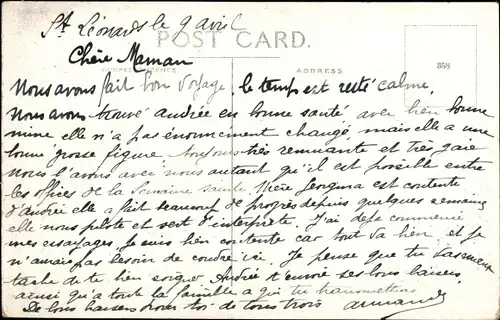 St Léonards le 9 avril
POST CARD.
Chère Maman
CORRESPONDENCE
ADDRESS
858
Nous avons fait bon voyage, le temps est resté calme.
Nous avons trouvé Andrée en bonne santé avec bien bonne
mine elle n'a pas énormément changé, mais elle a une
bonne grosse figure. toujours très remuante et très gaie
nous l'avons avec nous autant qu'il est possible entre
les offices de la Semaine sainte. Mère Georgina est contente
d'Andrée elle a fait beaucoup de progrès depuis quelques semaines
elle nous pilote et sert d'interprète. J'ai déjà commencé
mes essayages. Je suis bien contente car tout va bien et je
n'aurais pas besoin de coudre ici. Je pense que tu
tache de te bien soigner Andrée t'envoie ses bons baisers
ainsi qu'à toute la famille à qui tu transmettras
De bons baisers pour toi de tous trois Armande